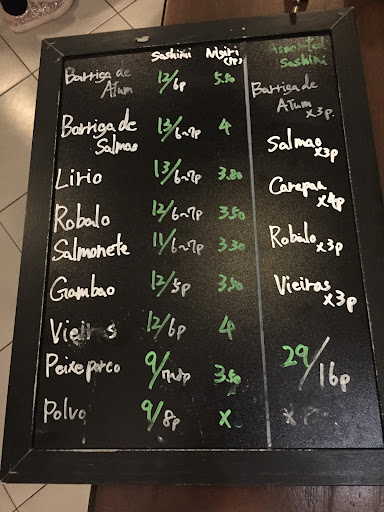 Sashimi Nigiri (1p) Assorted
Sashimi
Barriga de
Atum 12/6p 5.50
Barriga de
Salmao 13/6~7p 4
Lirio 13/6~7p 3.80
Robalo 12/6~7p 3.50
Salmonete 11/6~7p 3.30
Gambao 12/5p 3.50
Vieiras 12/6p 4
Peixe porco 9/7~8p 3.50
Polvo 9/8p x
Barriga de
Atum
x3p.
Salmao
x3p
Carapau
x4p
Robalo x3p
Vieiras
x3p
29/16p